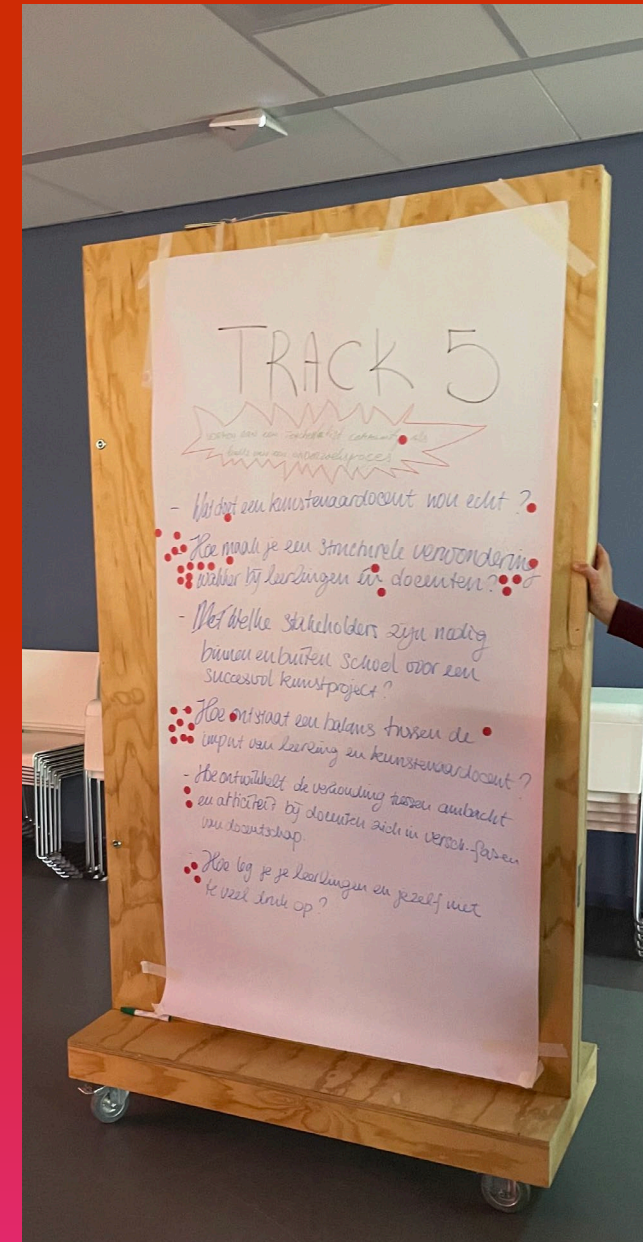 TRACK 5
een community als
van een onderzoeksproces
- Wat doet een kunstenaardocent nou echt?
- Hoe maak je een structurele verwondering
wakker bij leerlingen én docenten?
- Welke stakeholders zijn nodig
binnen en buiten school voor een
succesvol kunstproject?
- Hoe ontstaat een balans tussen de
input van leerling en kunstenaardocent?
- Hoe ontwikkelt de verhouding tussen ambacht
en bij docenten zich in versch. fasen
van docentschap.
- Hoe leg je je leerlingen en jezelf niet
te veel druk op?